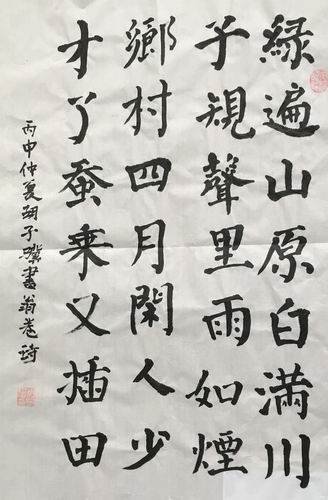 綠遍山原白滿川
子規聲里雨如煙
鄉村四月閑人少
才了蚕桒又插田
丙申仲夏 子 書翁卷詩